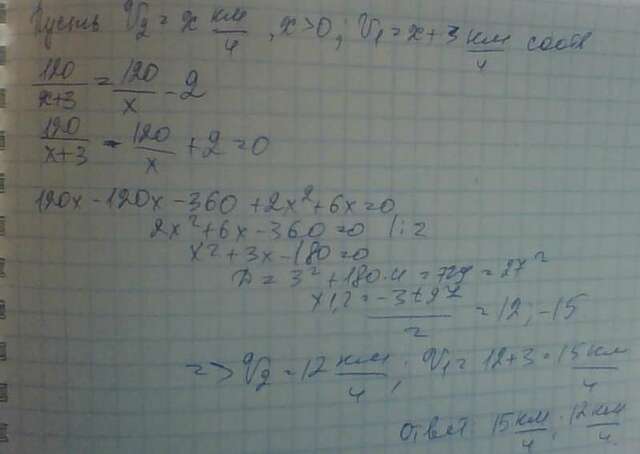 Пусть V₂ = x км/ч, x>0; V₁ = x+3 км/ч соотв
120/(x+3) = 120/x - 2
120/(x+3) - 120/x + 2 = 0
120x - 120x - 360 + 2x² + 6x = 0
2x² + 6x - 360 = 0 |:2
x² + 3x - 180 = 0
D = 3² + 180·4 = 729 = 27²
x₁,₂ = (-3 ± 27)/2 = 12, -15
=> V₂ = 12 км/ч; V₁ = 12+3 = 15 км/ч
Ответ: 15 км/ч; 12 км/ч.